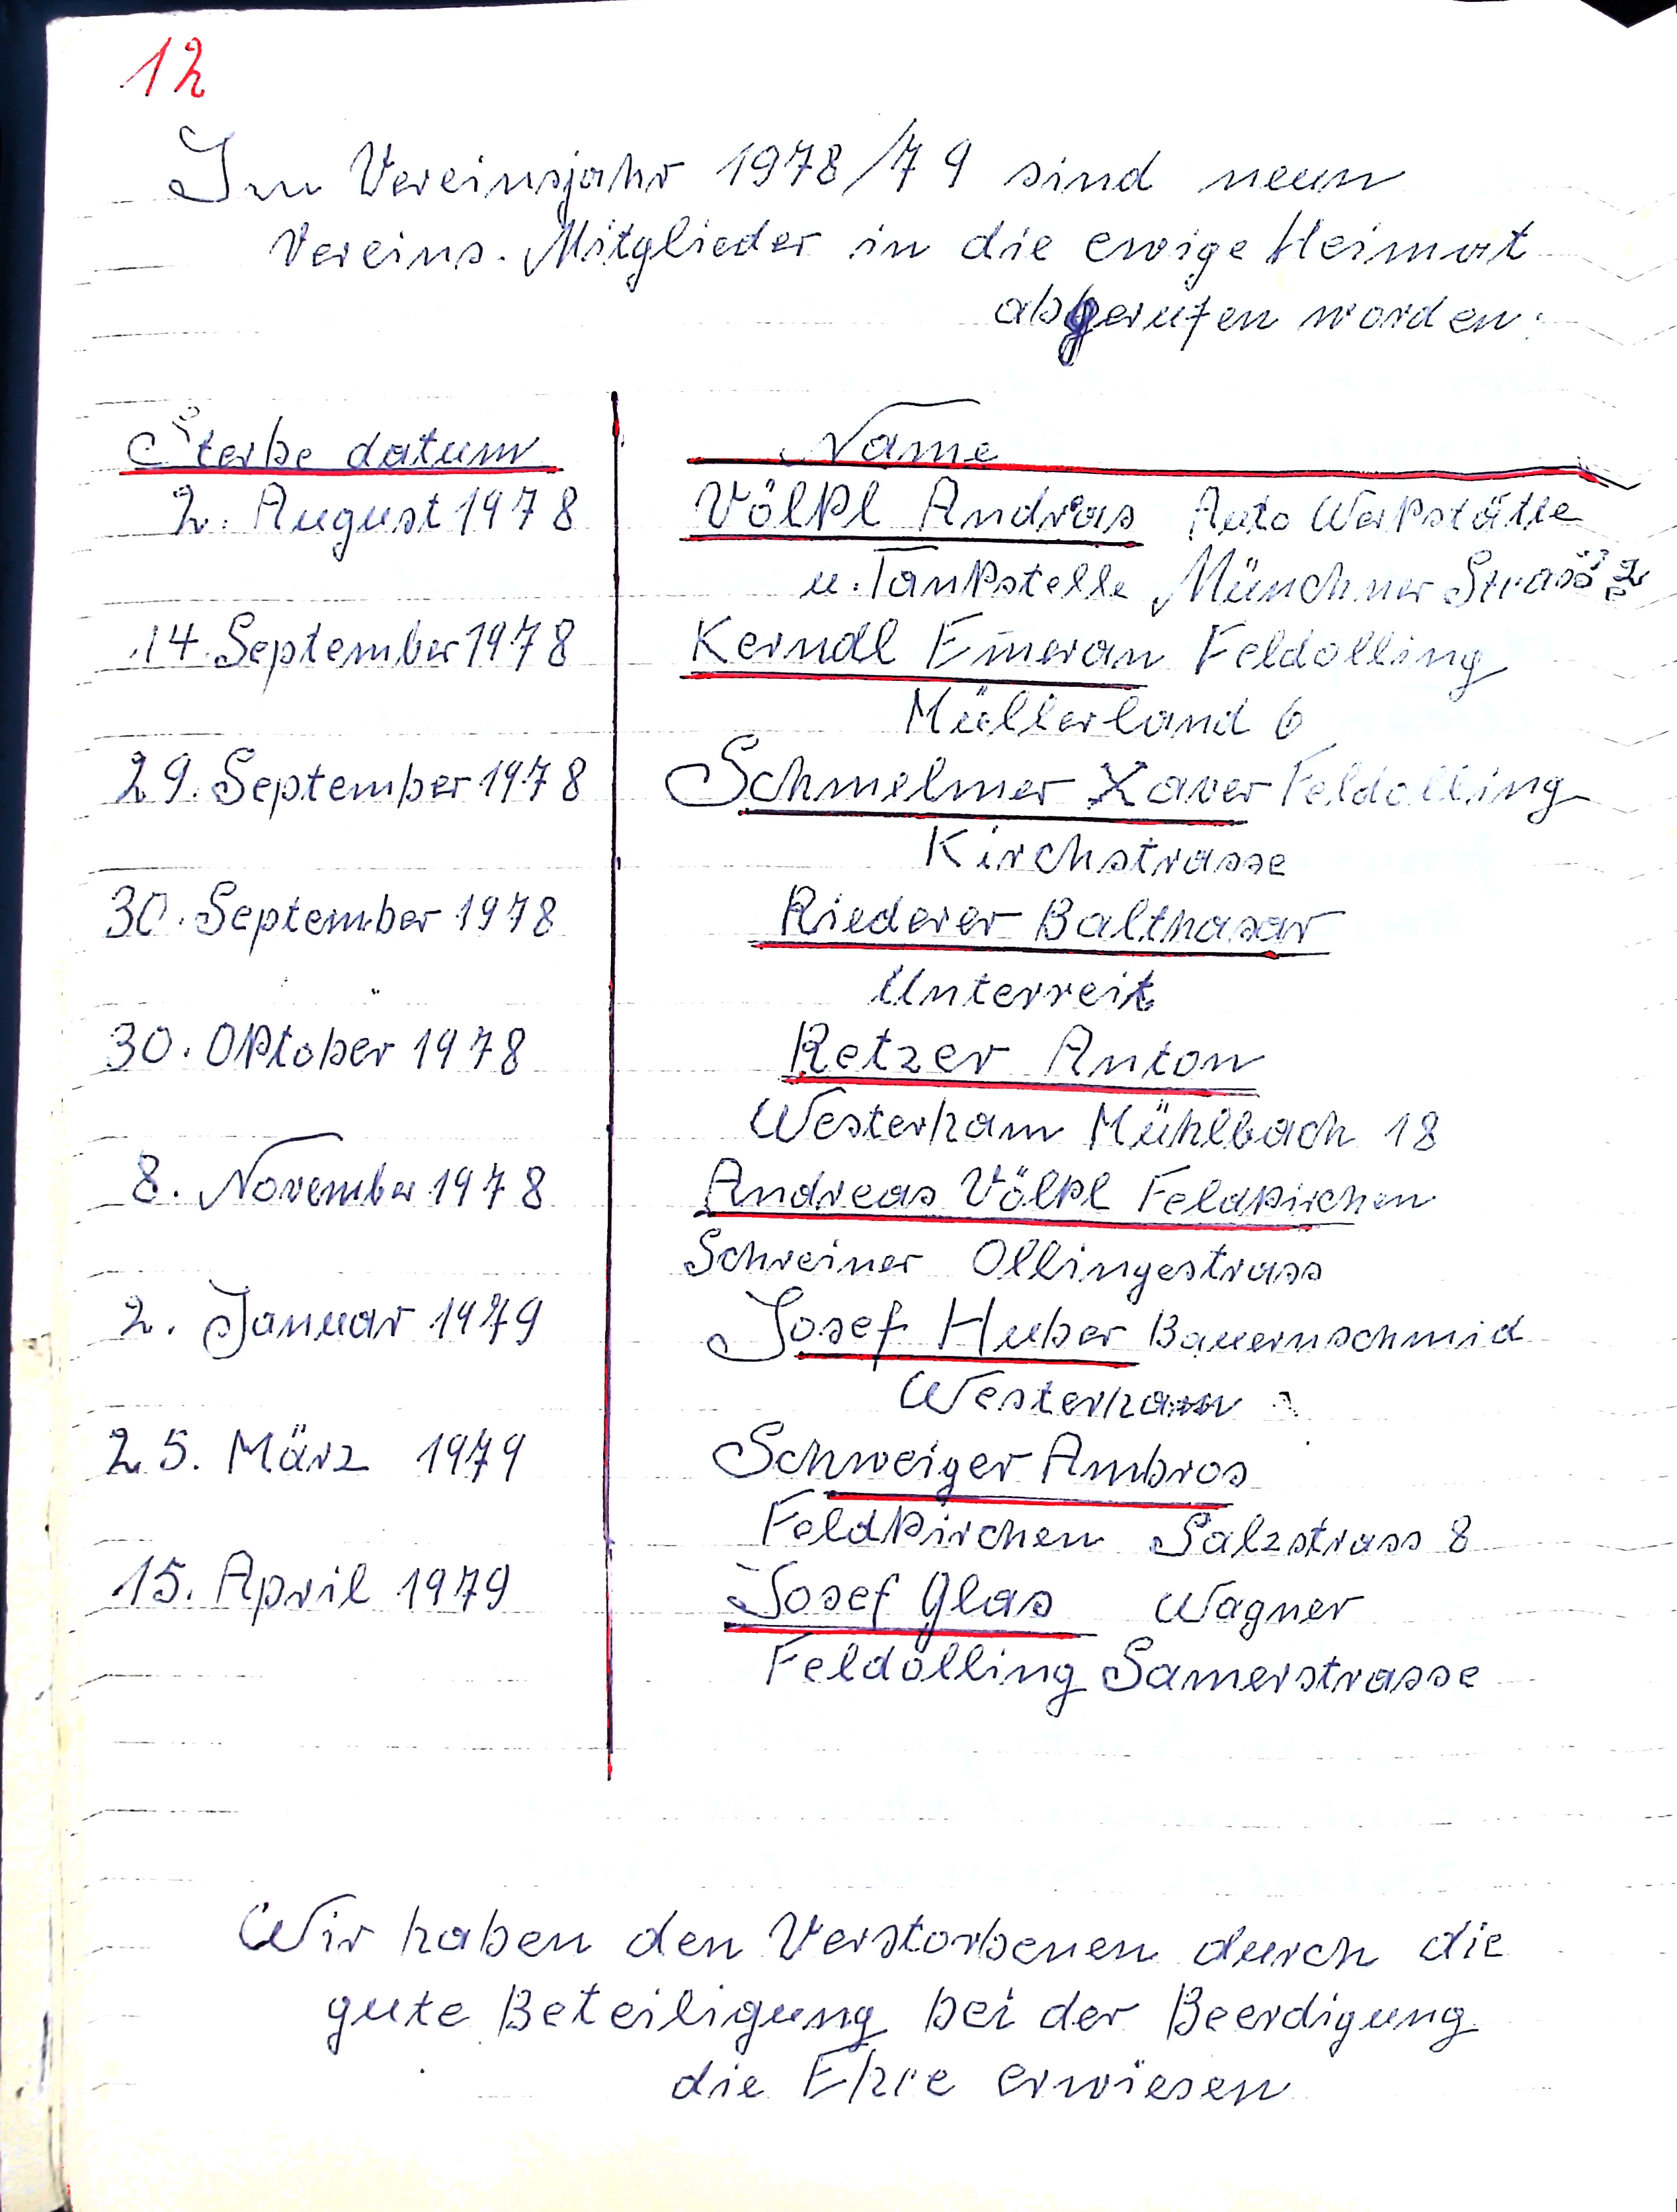 12
Im Vereinsjahr 1978/79 sind neun
Vereins. Mitglieder in die ewige Heimat
abgerufen worden.
Sterbe datum Name
2. August 1978 Völkl Andras Auto Werkstätte
u. Tankstelle Münchner Strasse
14. September 1978 Kerndl Emeran Feldolling
Müllerland 6
29. September 1978 Schmelmer Xaver Feldolling
Kirchstrasse
30. September 1978 Riederer Balthasar
Unterreit
30. Oktober 1978 Retzer Anton
Westerham Mühlbach 18
8. November 1978 Andreas Völkl Feldkirchen
Schreiner Ollingestrass
2. Januar 1979 Josef Huber Bauernschmid
Westerham
25. März 1979 Schweiger Ambros
Feldkirchen Salzstrass 8
15. April 1979 Josef Glas Wagner
Feldolling Samerstrasse
Wir haben den Verstorbenen durch die
gute Beteiligung bei der Beerdigung
die Ehre erwiesen